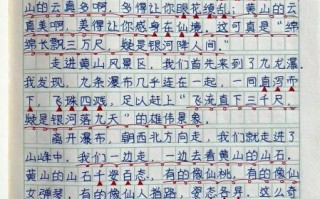 山的云真多啊，多得让你眼花缭乱；黄山的云
真美啊，美得让你感身在仙境，这可真是“绵
绵长飘三万尺，疑是银河降人间。”
走进黄山风景区，我们首先来到了九龙瀑。
我发现，九条瀑布几乎连在一起，一同直泻而
下，飞珠四溅，足以赶上“飞流直下三千尺，
疑是银河落九天”的雄伟景象。
离开瀑布，朝西北方向走，我们就走进了
山峰中，我们一边走，一边去看黄山的山石。
黄山的山石千姿百态，有的像仙桃，有的像仙
女弹琴，有的像仙人指路，姿态各异，这么奇